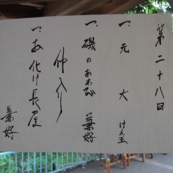 第二十八回
一、元犬 けん玉
一、磯のあわび 兼好
仲入り
一、お化け長屋
兼好